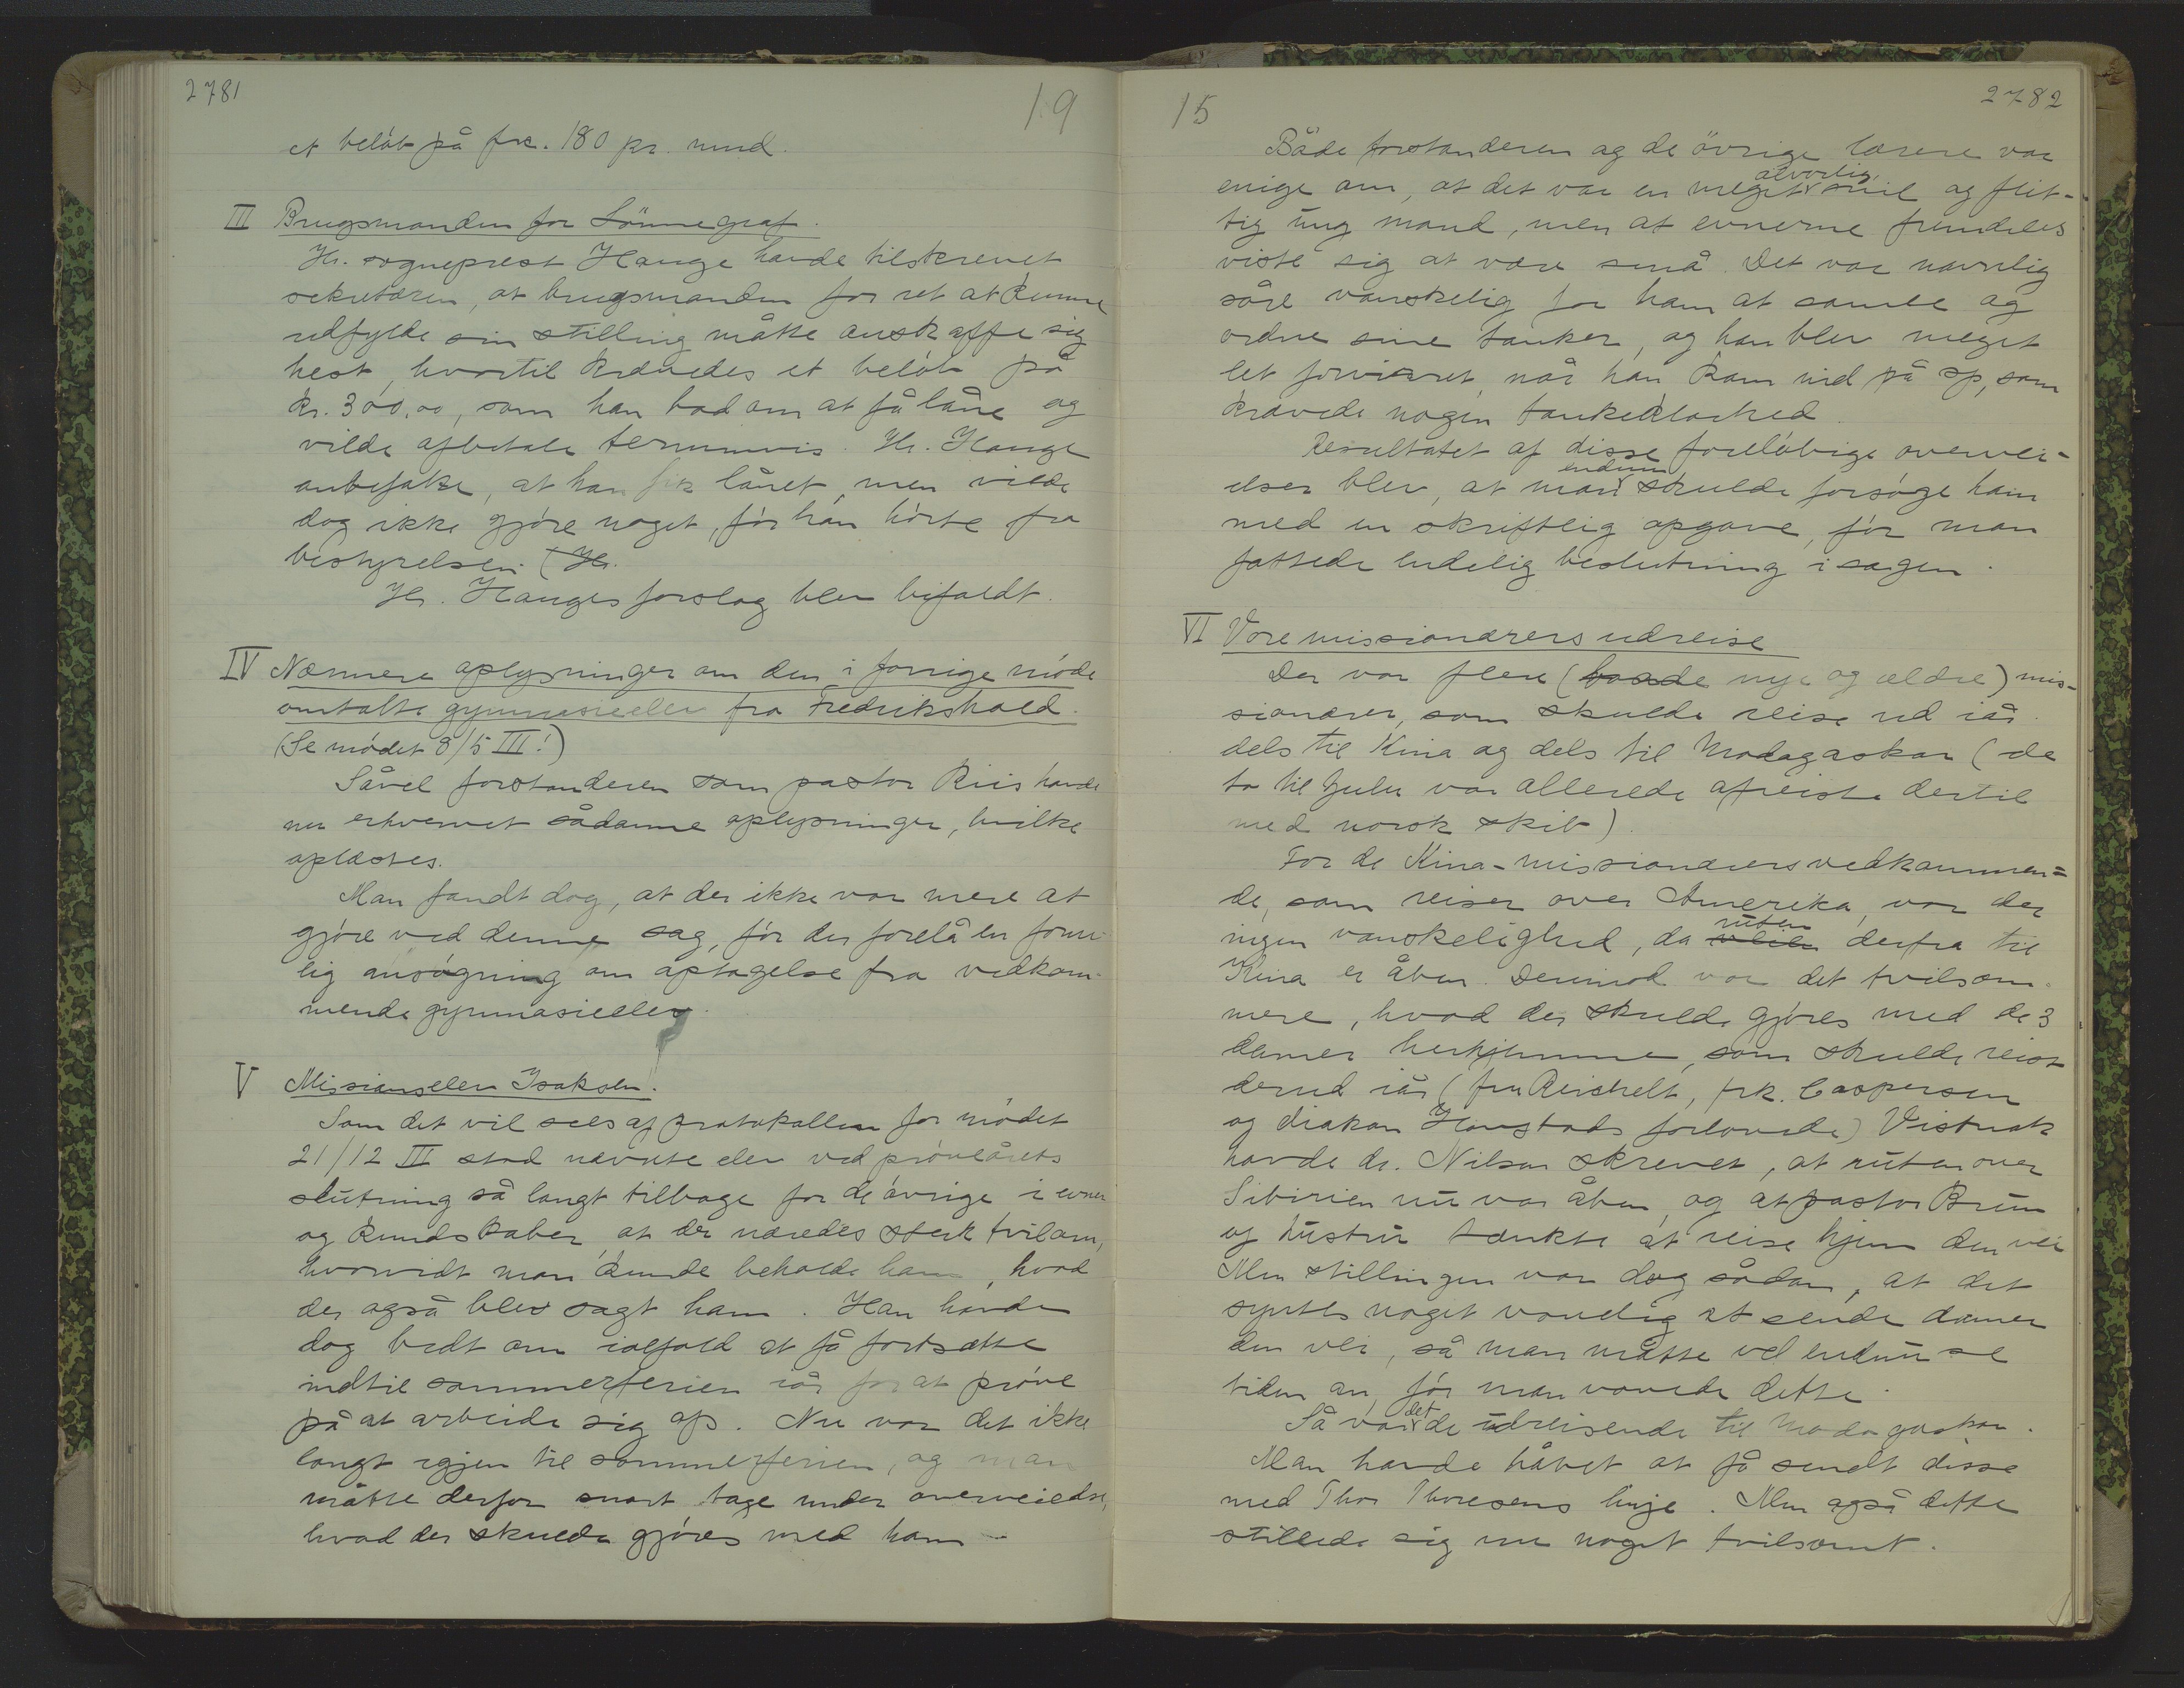 2781
19
et beløb på frc. 180 pr. mnd.
III Brugsmanden for Lønnegraf.
Hr. sogneprest Hauge havde tilskrevet
sekretæren, at brugsmanden for ret at kunne
udfylde sin stilling måtte anskaffe sig
hest, hvortil krævedes et beløb på
kr. 300,00, som han bad om at få låne og
vilde afbetale terminvis. Hr. Hauge
anbefalte, at han fik lånet, men vilde
dog ikke gjøre noget, før han hørte fra
bestyrelsen. (Hr.
Hr. Hauges forslag blev bifaldt.
IV Nærmere oplysninger om den i forrige møde
omtalte gymnasieelev fra Fredrikshald.
(Se mødet 8/5 III!)
Såvel forstanderen som pastor Riis havde
nu erhvervet sådanne oplysninger, hvilke
oplæstes.
Man fandt dog, at der ikke var mere at
gjøre ved denne sag, før der forelå en form-
lig ansøgning om optagelse fra vedkom-
mende gymnasieelev.
V Missionselev Isaksen.
Som det vil sees af protokollen for mødet
21/12 III stod nævnte elev ved prøveårets
slutning så langt tilbage for de øvrige i evner
og kundskaber, at der næredes sterk tvil om,
hvorvidt man kunde beholde ham, hvad
der også blev sagt ham. Han havde
dog bedt om ialfald at få fortsætte
indtil sommerferien iår for at prøve
på at arbeide sig op. Nu var det ikke
langt igjen til sommerferien, og man
måtte derfor snart tage under overveielse,
hvad der skulde gjøres med ham.
15
2782
Både forstanderen og de øvrige lærere var
enige om, at det var en meget alvorlig, snil og flit-
tig ung mand, men at evnerne fremdeles
viste sig at være små. Det var navnlig
såre vanskelig for ham at samle og
ordne sine tanker, og han blev meget
let forvirret, når han kom ind på sp, som
krævede nogen tankeklarhed.
Resultatet af disse foreløbige overvei-
elser blev, at man endnu skulde forsøge ham
med en skriftlig opgave, før man
fattede endelig beslutning i sagen.
VI Vore missionærers udreise
Der var flere (baade nye og ældre) mis-
sionærer, som skulde reise ud iår
dels til Kina og dels til Madagaskar (de
to til Zulu var allerede afreiste dertil
med norsk skib).
For de Kina-missionærers vedkommen=
de, som reiser over Amerika, var der
ingen vanskelighed, da ruten derfra til
Kina er åben. Derimod var det tvilsom-
mere, hvad der skulde gjøres med de 3
damer herhjemme, som skulde reist
derud iår (fru Reichelt, frk. Caspersen
og diakon Havstads forlovede) Vistnok
havde dr. Nilsen skrevet, at ruten over
Sibirien nu var åben, og at pastor Bruun
og hustru tænkte at reise hjem den vei
Men stillingen var dog sådan, at det
syntes noget vovelig at sende damer
den vei, så man måtte vel endnu se
tiden an, før man vovede dette.
Så var det de udreisende til Madagaskar.
Man havde håbet at få sendt disse
med Thor Thoresens linje. Men også dette
stillede sig nu noget tvilsomt.